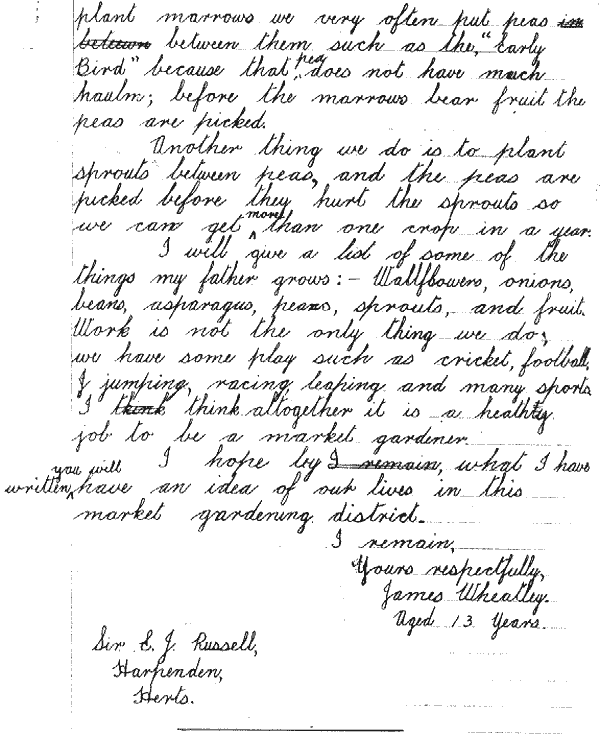 plant marrows we very often put peas in
between between them such as the, "Early
Bird" because that pea does not have much
haulm; before the marrows bear fruit the
peas are picked.
Another thing we do is to plant
sprouts between peas, and the peas are
picked before they hurt the sprouts so
we can get more than one crop in a year.
I will give a list of some of the
things my father grows:- Wallflowers, onions,
beans, asparagus, peas, sprouts, and fruit.
Work is not the only thing we do,
we have some play such as cricket, football,
I jumping, racing, leaping and many sports.
I think think altogether it is a healthy
job to be a market gardener.
I hope by I remain, what I have
written, you will have an idea of our lives in this
market gardening district.
I remain,
Yours respectfully,
James Wheatley.
Aged 13 Years.
Sir E. J. Russell,
Harpenden,
Herts.